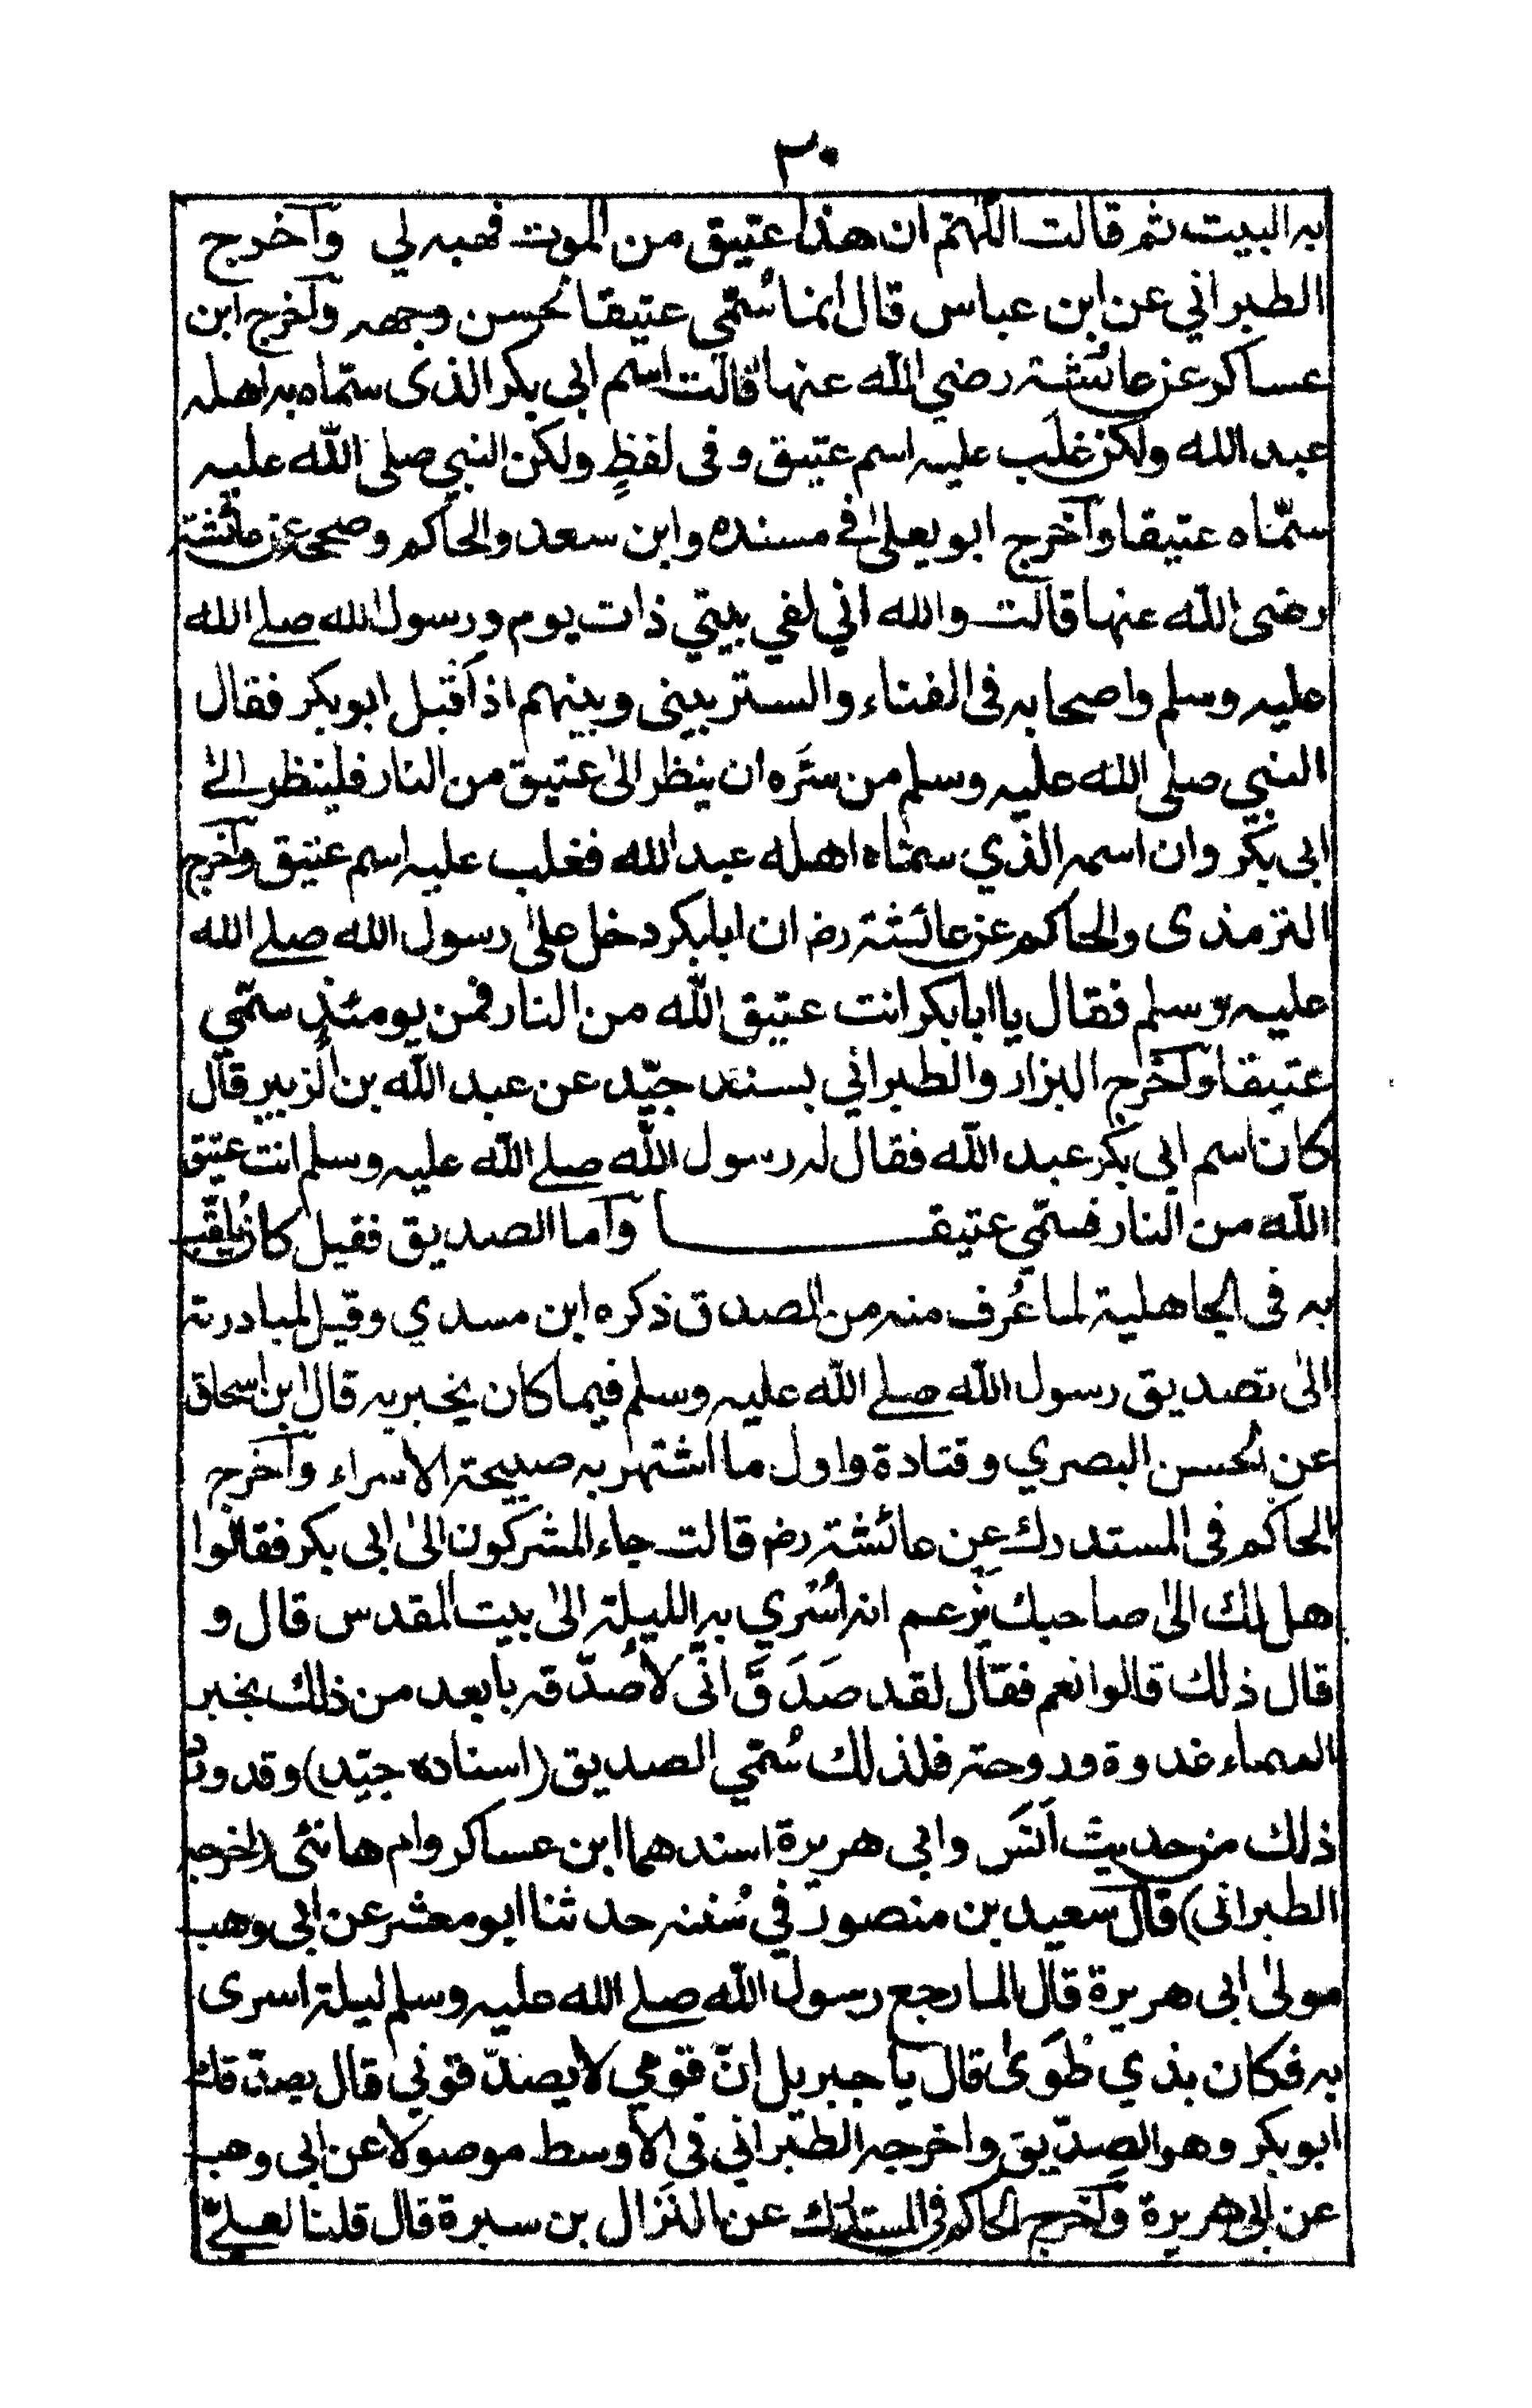 ٣٠
به البيت ثم قالت اللّهمّ ان هذا عتيق من الموت فهبه لي وآخرج
الطبراني عن ابن عباس قال انما سُمّي عتيقا لحسن وجهه وآخرج ابن
عساكر عن عائشة رضي الله عنها قالت اسم ابي بكر الذى سمّاه به اهله
عبد الله ولكن غلَب عليه اسم عتيق و فى لفظٍ ولكن النبي صلى الله عليه
سمّاه عتيقا وآخرج ابو يعلى في مسنده وابن سعد والحاكم وصححه عن عائشة
رضى الله عنها قالت والله اني لفي بيتي ذات يوم ورسول الله صلے الله
عليه وسلم واصحابه فى الفناء والستر بينى وبينهم اذ اقبل ابو بكر فقال
النبي صلى الله عليه وسلم من سرّه ان ينظر الىٰ عتيق من النار فلينظر الىٰ
ابى بكر وان اسمه الذي سمّاه اهله عبد الله فغلب عليه اسم عتيق وآخرج
الترمذى والحاكم عن عائشة رضـ ان ابابكر دخل علىٰ رسول الله صلے الله
عليه وسلم فقال يا ابابكر انت عتيق الله من النار فمن يومئذٍ سمّي
عتيقا وآخرج البزار والطبراني بسند جيّد عن عبد الله بن الزبير قال
كان اسم ابى بكر عبد الله فقال له رسول الله صلے الله عليه وسلم انت عتيق
الله من النار فسمّي عتيقـــــــا وآما الصديق فقيل كان يُلقّب
به فى الجاهلية لما عُرف منه من الصدق ذكره ابن مسدي وقيل لمبادرته
الىٰ تصديق رسول الله صلے الله عليه وسلم فيما كان يخبر به قال ابن اسحاق
عن الحسن البصري وقتادة واول ما اشتهر به صبيحة الاسراء وآخرج
الحاكم فى المستدرك عن عائشة رضـ قالت جاء المشركون الىٰ ابى بكر فقالوا
هل لك الىٰ صاحبك يزعم انه اُسْري به الليلة الىٰ بيت المقدس قال و
قال ذلك قالوا نعم فقال لقد صَدَقَ انّى لاُصدّقه بابعد من ذلك بخبر
السماء غدوة وروحة فلذلك سُمّي الصديق (اسناده جيّد) وقد ورد
ذلك من حديث انَس وابي هريرة اسندهما ابن عساكر وام هانئى (اخرجه
الطبرانى) قال سعيد بن منصور في سُننه حدثنا ابو معشر عن ابى وهب
مولىٰ ابى هريرة قال لما رجع رسول الله صلے الله عليه وسلم ليلة اسرى
به فكان بذي طَوىٰ قال يا جبريل انّ قومي لا يصدّقوني قال يصدّقك
ابو بكر وهو الصدّيق واخرجه الطبراني فى الاوسط موصولا عن ابى وهب
عن ابى هريرة وآخرج الحاكم فى المستدرك عن النَزال بن سبرة قال قلنا لعليّ